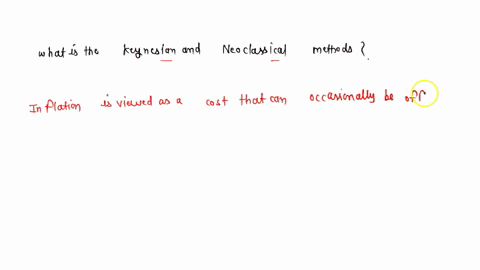 what is the keynesian and Neoclassical methods?
Inflation is viewed as a cost that can occasionally be off